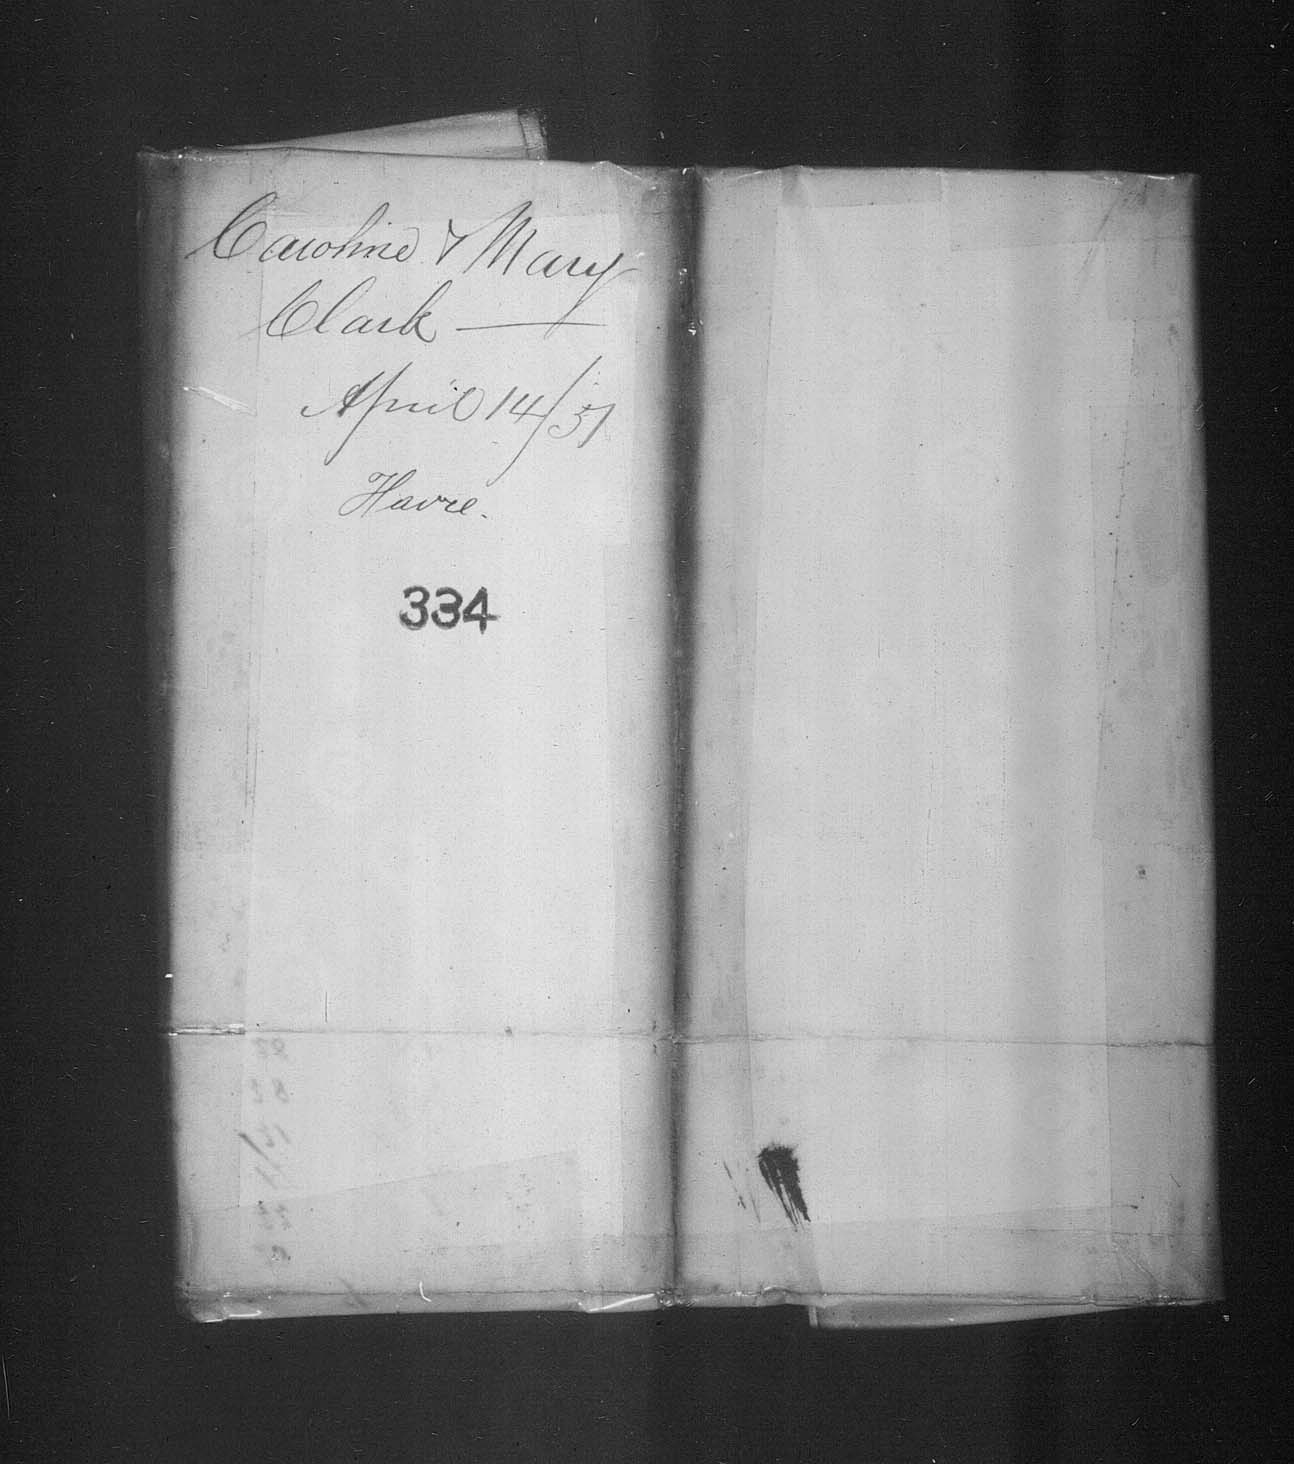 Caroline & Mary
Clark —
April 14/51
Havre.
334